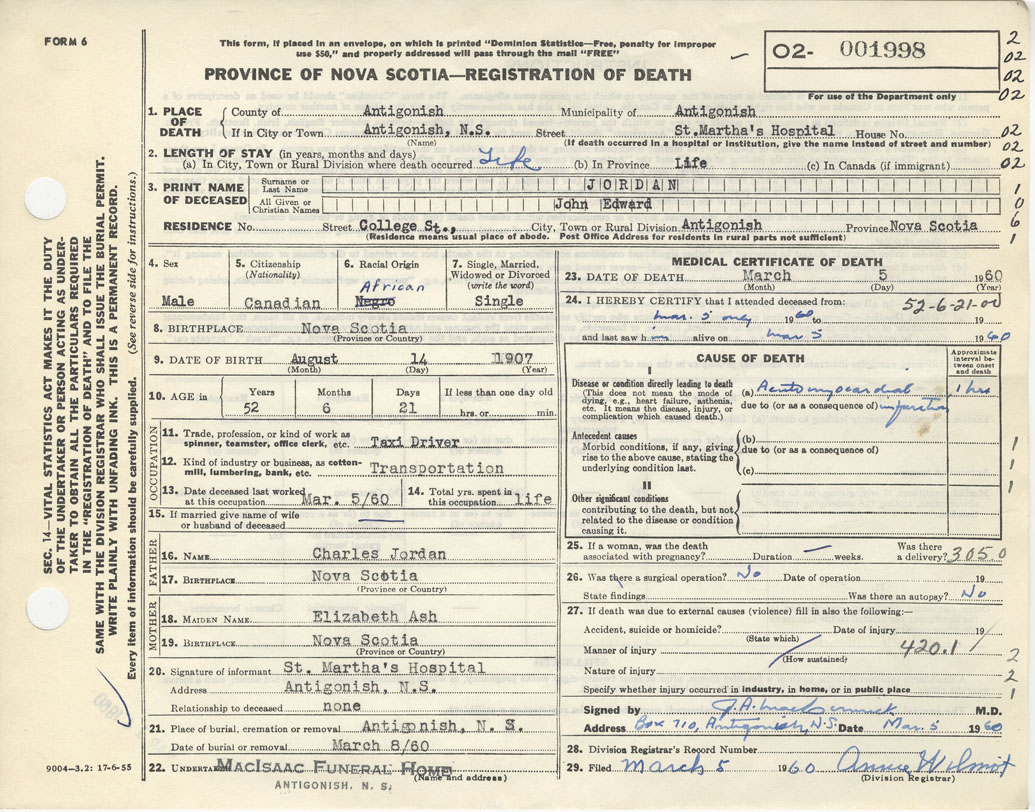 FORM 6
This form, if placed in an envelope, on which is printed "Dominion Statistics—Free, penalty for improper
use $50," and properly addressed will pass through the mail "FREE"
PROVINCE OF NOVA SCOTIA—REGISTRATION OF DEATH
02- 001998
For use of the Department only
2
02
02
02
1. PLACE OF DEATH
County of Antigonish Municipality of Antigonish
If in City or Town Antigonish, N.S. Street St.Martha's Hospital House No.
(Name) (If death occurred in a hospital or institution, give the name instead of street and number)
02
02
02
2. LENGTH OF STAY (in years, months and days)
(a) In City, Town or Rural Division where death occurred Life (b) In Province Life (c) In Canada (if immigrant)
3. PRINT NAME OF DECEASED
Surname or Last Name JORDAN
All Given or Christian Names John Edward
RESIDENCE No. Street College St., City, Town or Rural Division Antigonish Province Nova Scotia
(Residence means usual place of abode. Post Office Address for residents in rural parts not sufficient)
1
0
6
1
4. Sex
Male
5. Citizenship
(Nationality)
Canadian
6. Racial Origin
African
Negro
7. Single, Married,
Widowed or Divorced
(write the word)
Single
8. BIRTHPLACE Nova Scotia
(Province or Country)
9. DATE OF BIRTH August 14 1907
(Month) (Day) (Year)
10. AGE in
Years Months Days If less than one day old
52 6 21 hrs. or min.
OCCUPATION
11. Trade, profession, or kind of work as
spinner, teamster, office clerk, etc. Taxi Driver
12. Kind of industry or business, as cotton-
mill, lumbering, bank, etc. Transportation
13. Date deceased last worked
at this occupation Mar. 5/60
14. Total yrs. spent in
this occupation life
15. If married give name of wife
or husband of deceased
FATHER
16. NAME Charles Jordan
17. BIRTHPLACE Nova Scotia
(Province or Country)
MOTHER
18. MAIDEN NAME Elizabeth Ash
19. BIRTHPLACE Nova Scotia
(Province or Country)
20. Signature of informant St. Martha's Hospital
Address Antigonish, N.S.
Relationship to deceased none
21. Place of burial, cremation or removal Antigonish, N. S.
Date of burial or removal March 8/60
22. UNDERTAKER MACISAAC FUNERAL HOME
(Name and address)
ANTIGONISH, N. S.
MEDICAL CERTIFICATE OF DEATH
23. DATE OF DEATH March 5 1960
(Month) (Day) (Year)
24. I HEREBY CERTIFY that I attended deceased from: 52-6-21-00
Mar. 5 only 1960 to 19
and last saw him alive on Mar 5 1960
CAUSE OF DEATH
Approximate interval between onset and death
I
Disease or condition directly leading to death
(This does not mean the mode of
dying, e.g., heart failure, asthenia,
etc. It means the disease, injury, or
complication which caused death.)
(a) Acute myocardial 1 hrs
due to (or as a consequence of) infarction
Antecedent causes
Morbid conditions, if any, giving
rise to the above cause, stating the
underlying condition last.
(b)
due to (or as a consequence of)
(c)
1
1
1
II
Other significant conditions
contributing to the death, but not
related to the disease or condition
causing it.
25. If a woman, was the death
associated with pregnancy? Duration weeks. Was there
a delivery? 3050
26. Was there a surgical operation? No Date of operation 19
State findings Was there an autopsy? No
27. If death was due to external causes (violence) fill in also the following:—
Accident, suicide or homicide? Date of injury 19
(State which)
Manner of injury 420.1
(How sustained)
Nature of injury
Specify whether injury occurred in industry, in home, or in public place
2
2
1
Signed by M.D.
Address Box 710, Antigonish, N.S. Date Mar. 5 1960
28. Division Registrar's Record Number
29. Filed March 5 1960 Annie Wilmot
(Division Registrar)
SEC. 14—VITAL STATISTICS ACT MAKES IT THE DUTY
OF THE UNDERTAKER OR PERSON ACTING AS UNDER-
TAKER TO OBTAIN ALL THE PARTICULARS REQUIRED
IN THE "REGISTRATION OF DEATH" AND TO FILE THE
SAME WITH THE DIVISION REGISTRAR WHO SHALL ISSUE THE BURIAL PERMIT.
WRITE PLAINLY WITH UNFADING INK. THIS IS A PERMANENT RECORD.
Every item of information should be carefully supplied. (See reverse side for instructions.)
9004—3.2: 17-6-55